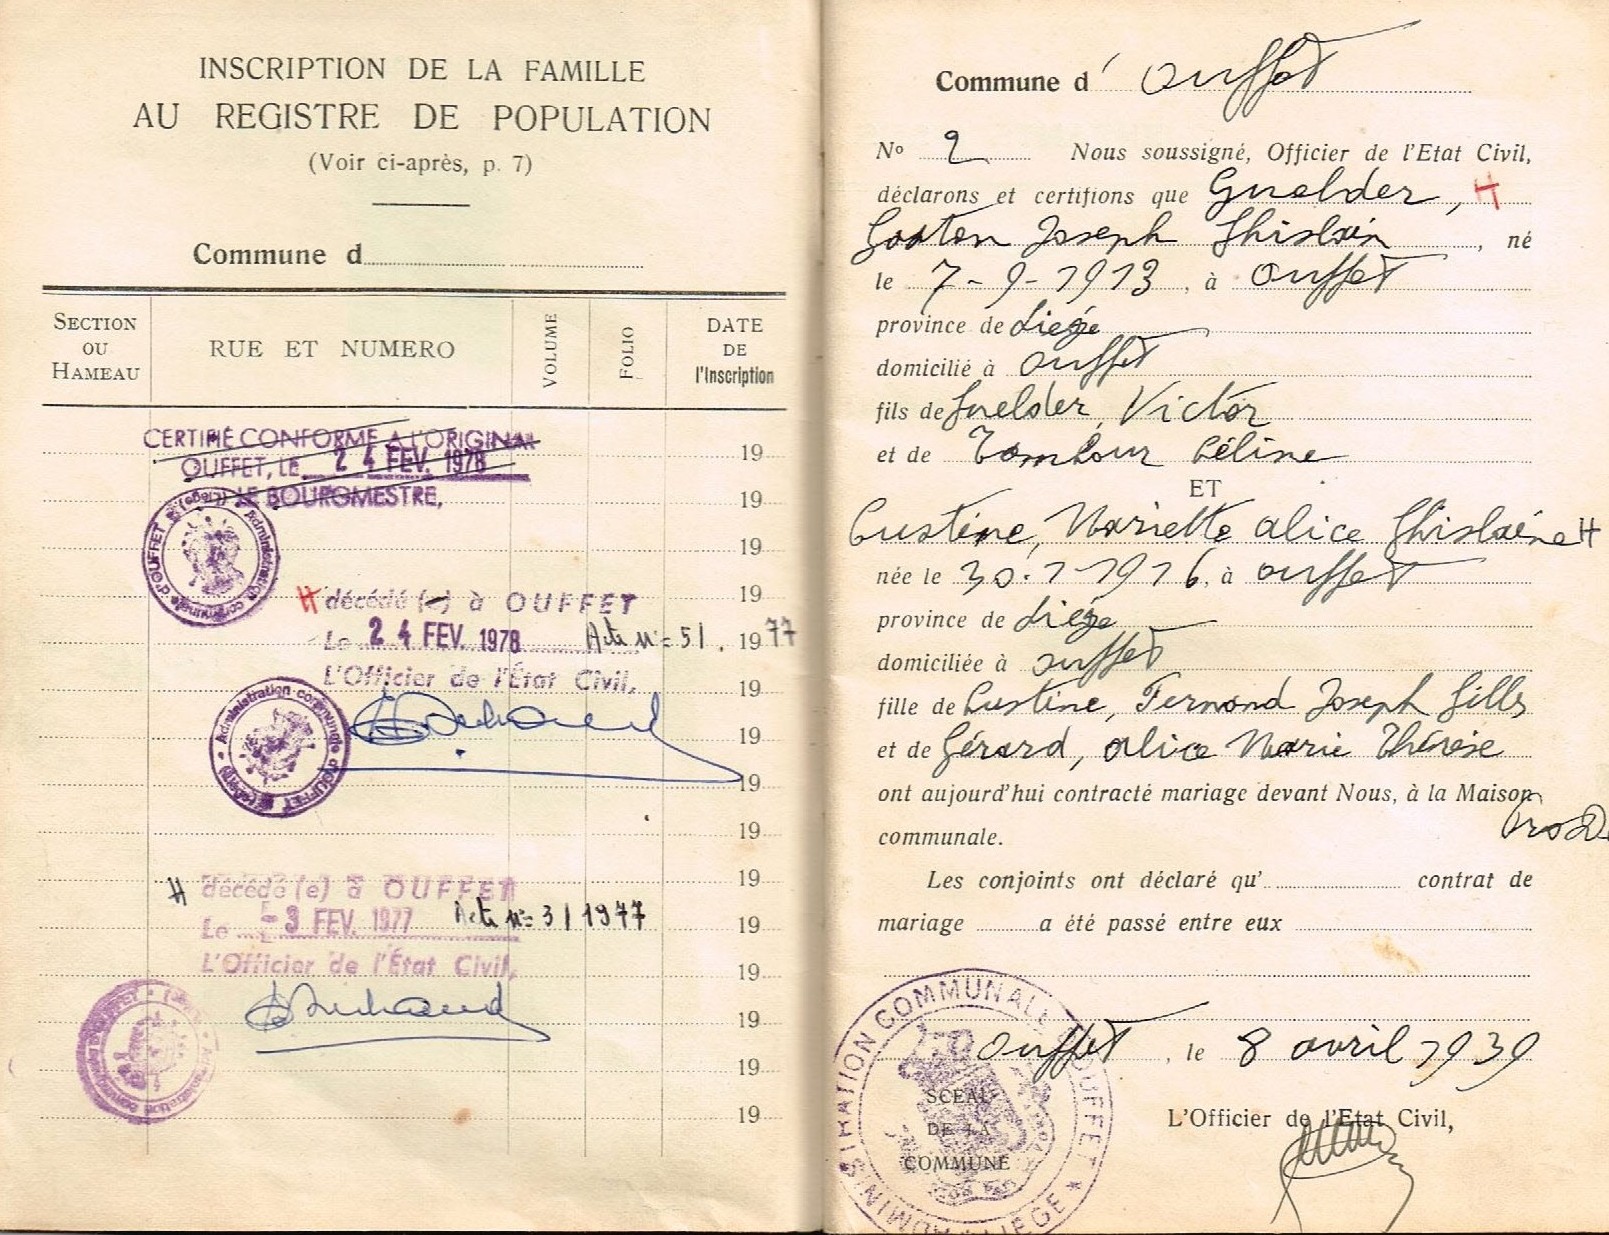 INSCRIPTION DE LA FAMILLE
AU REGISTRE DE POPULATION
(Voir ci-après, p. 7)
Commune d
SECTION OU HAMEAU
RUE ET NUMERO
VOLUME
FOLIO
DATE DE l'Inscription
CERTIFIÉ CONFORME A L'ORIGINAL
19
OUFFET, LE 24 FEV. 1978
LE BOURGMESTRE,
19
Administration communale d'OUFFET (Liège)
19
H décédé (e) à OUFFET
19
Le 24 FEV. 1978 Acte n= 51. 1977
L'Officier de l'État Civil,
19
Administration communale d'OUFFET (Liège)
19
19
19
H décédé (e) à OUFFET
19
Le -3 FEV. 1977 Acte n= 3 / 1977
19
L'Officier de l'État Civil,
19
19
19
19
Commune d' Ouffet
No 2 Nous soussigné, Officier de l'Etat Civil,
déclarons et certifions que Guelder, H
Gaston Joseph Ghislain, né
le 7-9-1913, à Ouffet
province de Liège
domicilié à Ouffet
fils de Guelder, Victor
et de Tombour Céline
ET
Custine, Mariette Alice Ghislaine H
née le 30.1-1916, à Ouffet
province de Liège
domiciliée à Ouffet
fille de Custine, Fernand Joseph Gills
et de Gérard, Alice Marie Thérèse
ont aujourd'hui contracté mariage devant Nous, à la Maison
communale.
Les conjoints ont déclaré qu' contrat de
mariage a été passé entre eux
Ouffet, le 8 avril 1939
SCEAU
DE LA
COMMUNE
ADMINISTRATION COMMUNALE OUFFET LIÈGE
L'Officier de l'Etat Civil,